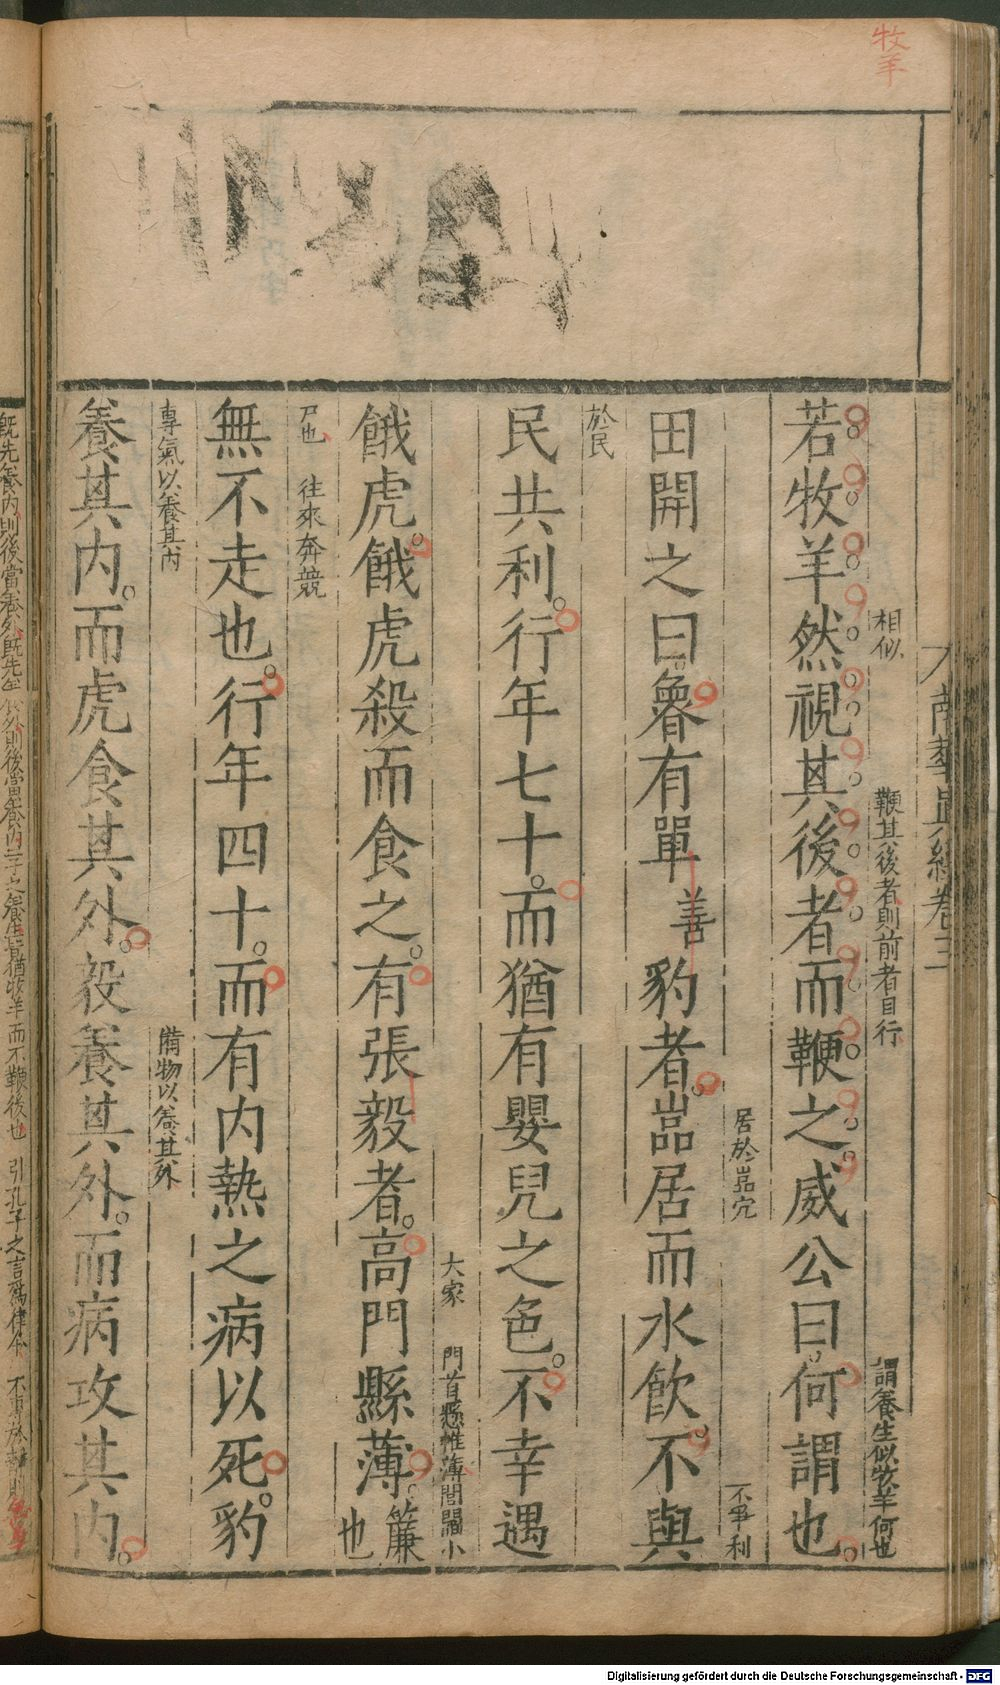 牧羊
南華眞經卷三
相似 鞭其後者則前者自行 謂養生似牧羊何也
若牧羊然視其後者而鞭之威公曰何謂也
居於嵓穴 不爭利
田開之曰魯有單善豹者嵓居而水飲不與
於民
民共利行年七十而猶有嬰兒之色不幸遇
大家 門首懸帷薄閭閻小
餓虎餓虎殺而食之有張毅者高門縣薄簾也
戸也 往來奔競
無不走也行年四十而有内熱之病以死豹
專氣以養其内 備物以養其外
養其内而虎食其外毅養其外而病攻其内
既先養内則後當養外既先 外則後當養内二子之養生皆猶牧羊而不鞭後也 引孔子之言爲律令 不專於
Digitalisierung gefördert durch die Deutsche Forschungsgemeinschaft - DFG